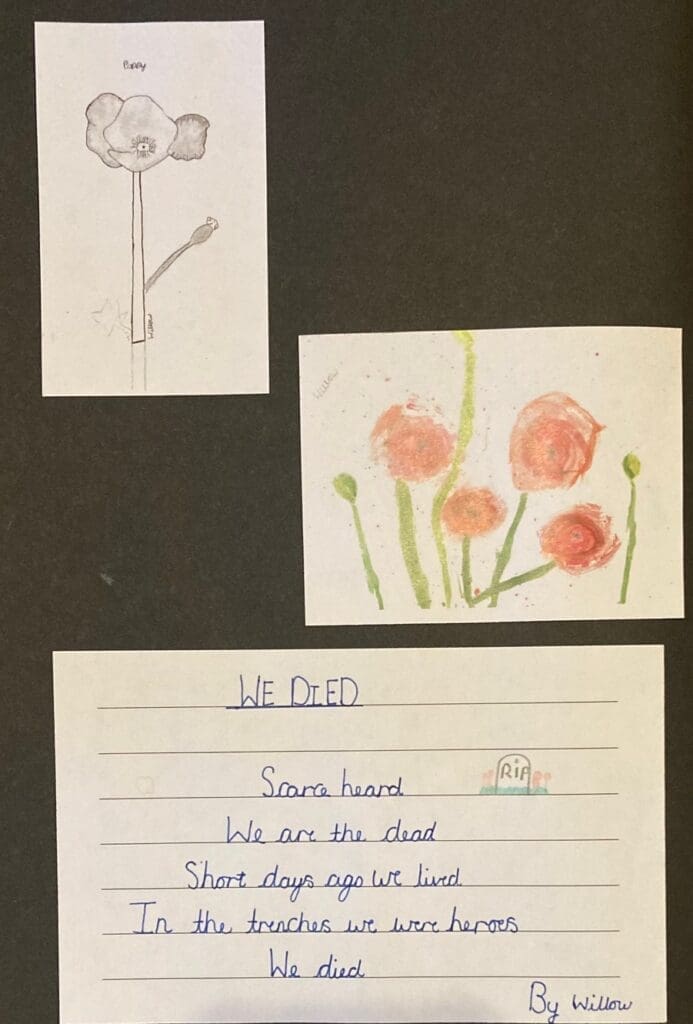 Poppy
Willow
Willow
WE DIED
Scarce heard
RIP
We are the dead
Short days ago we lived
In the trenches we were heroes
We died
By Willow